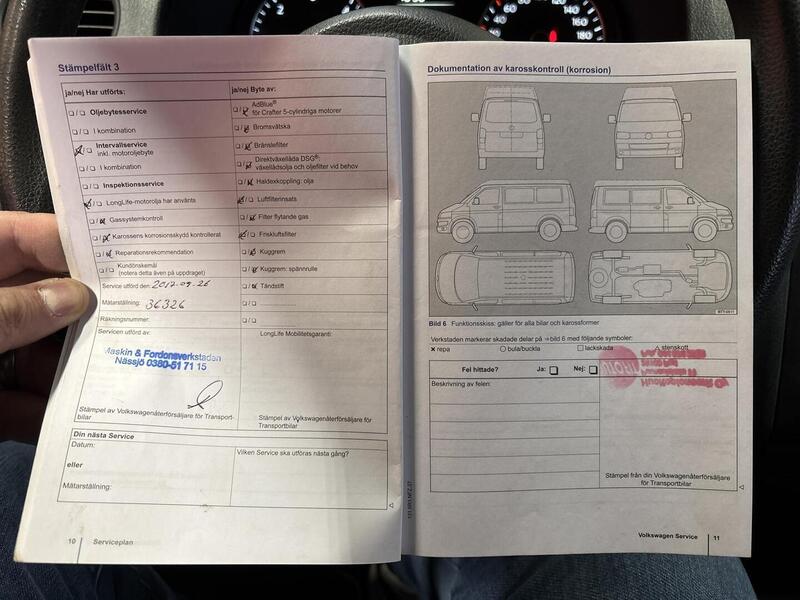 Stämpelfält 3
ja/nej Har utförts:
ja/nej Byte av:
Oljebytesservice
I kombination
Intervallservice
inkl. motoroljebyte
I kombination
Inspektionsservice
LongLife-motorolja har använts
Gassystemkontroll
Karossens korrosionsskydd kontrollerat
Reparationsrekommendation
Kundönskemål
(notera detta även på uppdraget)
Service utförd den: 2017-09-26
Mätarställning: 36326
Räkningsnummer:
AdBlue®
för Crafter 5-cylindriga motorer
Bromsvätska
Bränslefilter
Direktväxellåda DSG®:
växellådsolja och oljefilter vid behov
Haldexkoppling: olja
Luftfilterinsats
Filter flytande gas
Friskluftsfilter
Kuggrem
Kuggrem: spännrulle
Tändstift
Servicen utförd av:
Maskin & Fordonsverkstaden
Nässjö 0380-51 71 15
Stämpel av Volkswagenåterförsäljare för Transport-
bilar
LongLife Mobilitetsgaranti:
Stämpel av Volkswagenåterförsäljare för
Transportbilar
Din nästa Service
Datum:
eller
Mätarställning:
Vilken Service ska utföras nästa gång?
10 Serviceplan
Dokumentation av karosskontroll (korrosion)
Bild 6 Funktionsskiss: gäller för alla bilar och karossformer
Verkstaden markerar skadade delar på ⇒bild 6 med följande symboler:
× repa ○ bula/buckla □ lackskada △ stenskott
Fel hittade? Ja: Nej:
Beskrivning av felen:
Stämpel från din Volkswagenåterförsäljare
för Transportbilar
Volkswagen Service 11
80
140
100
160
180
2